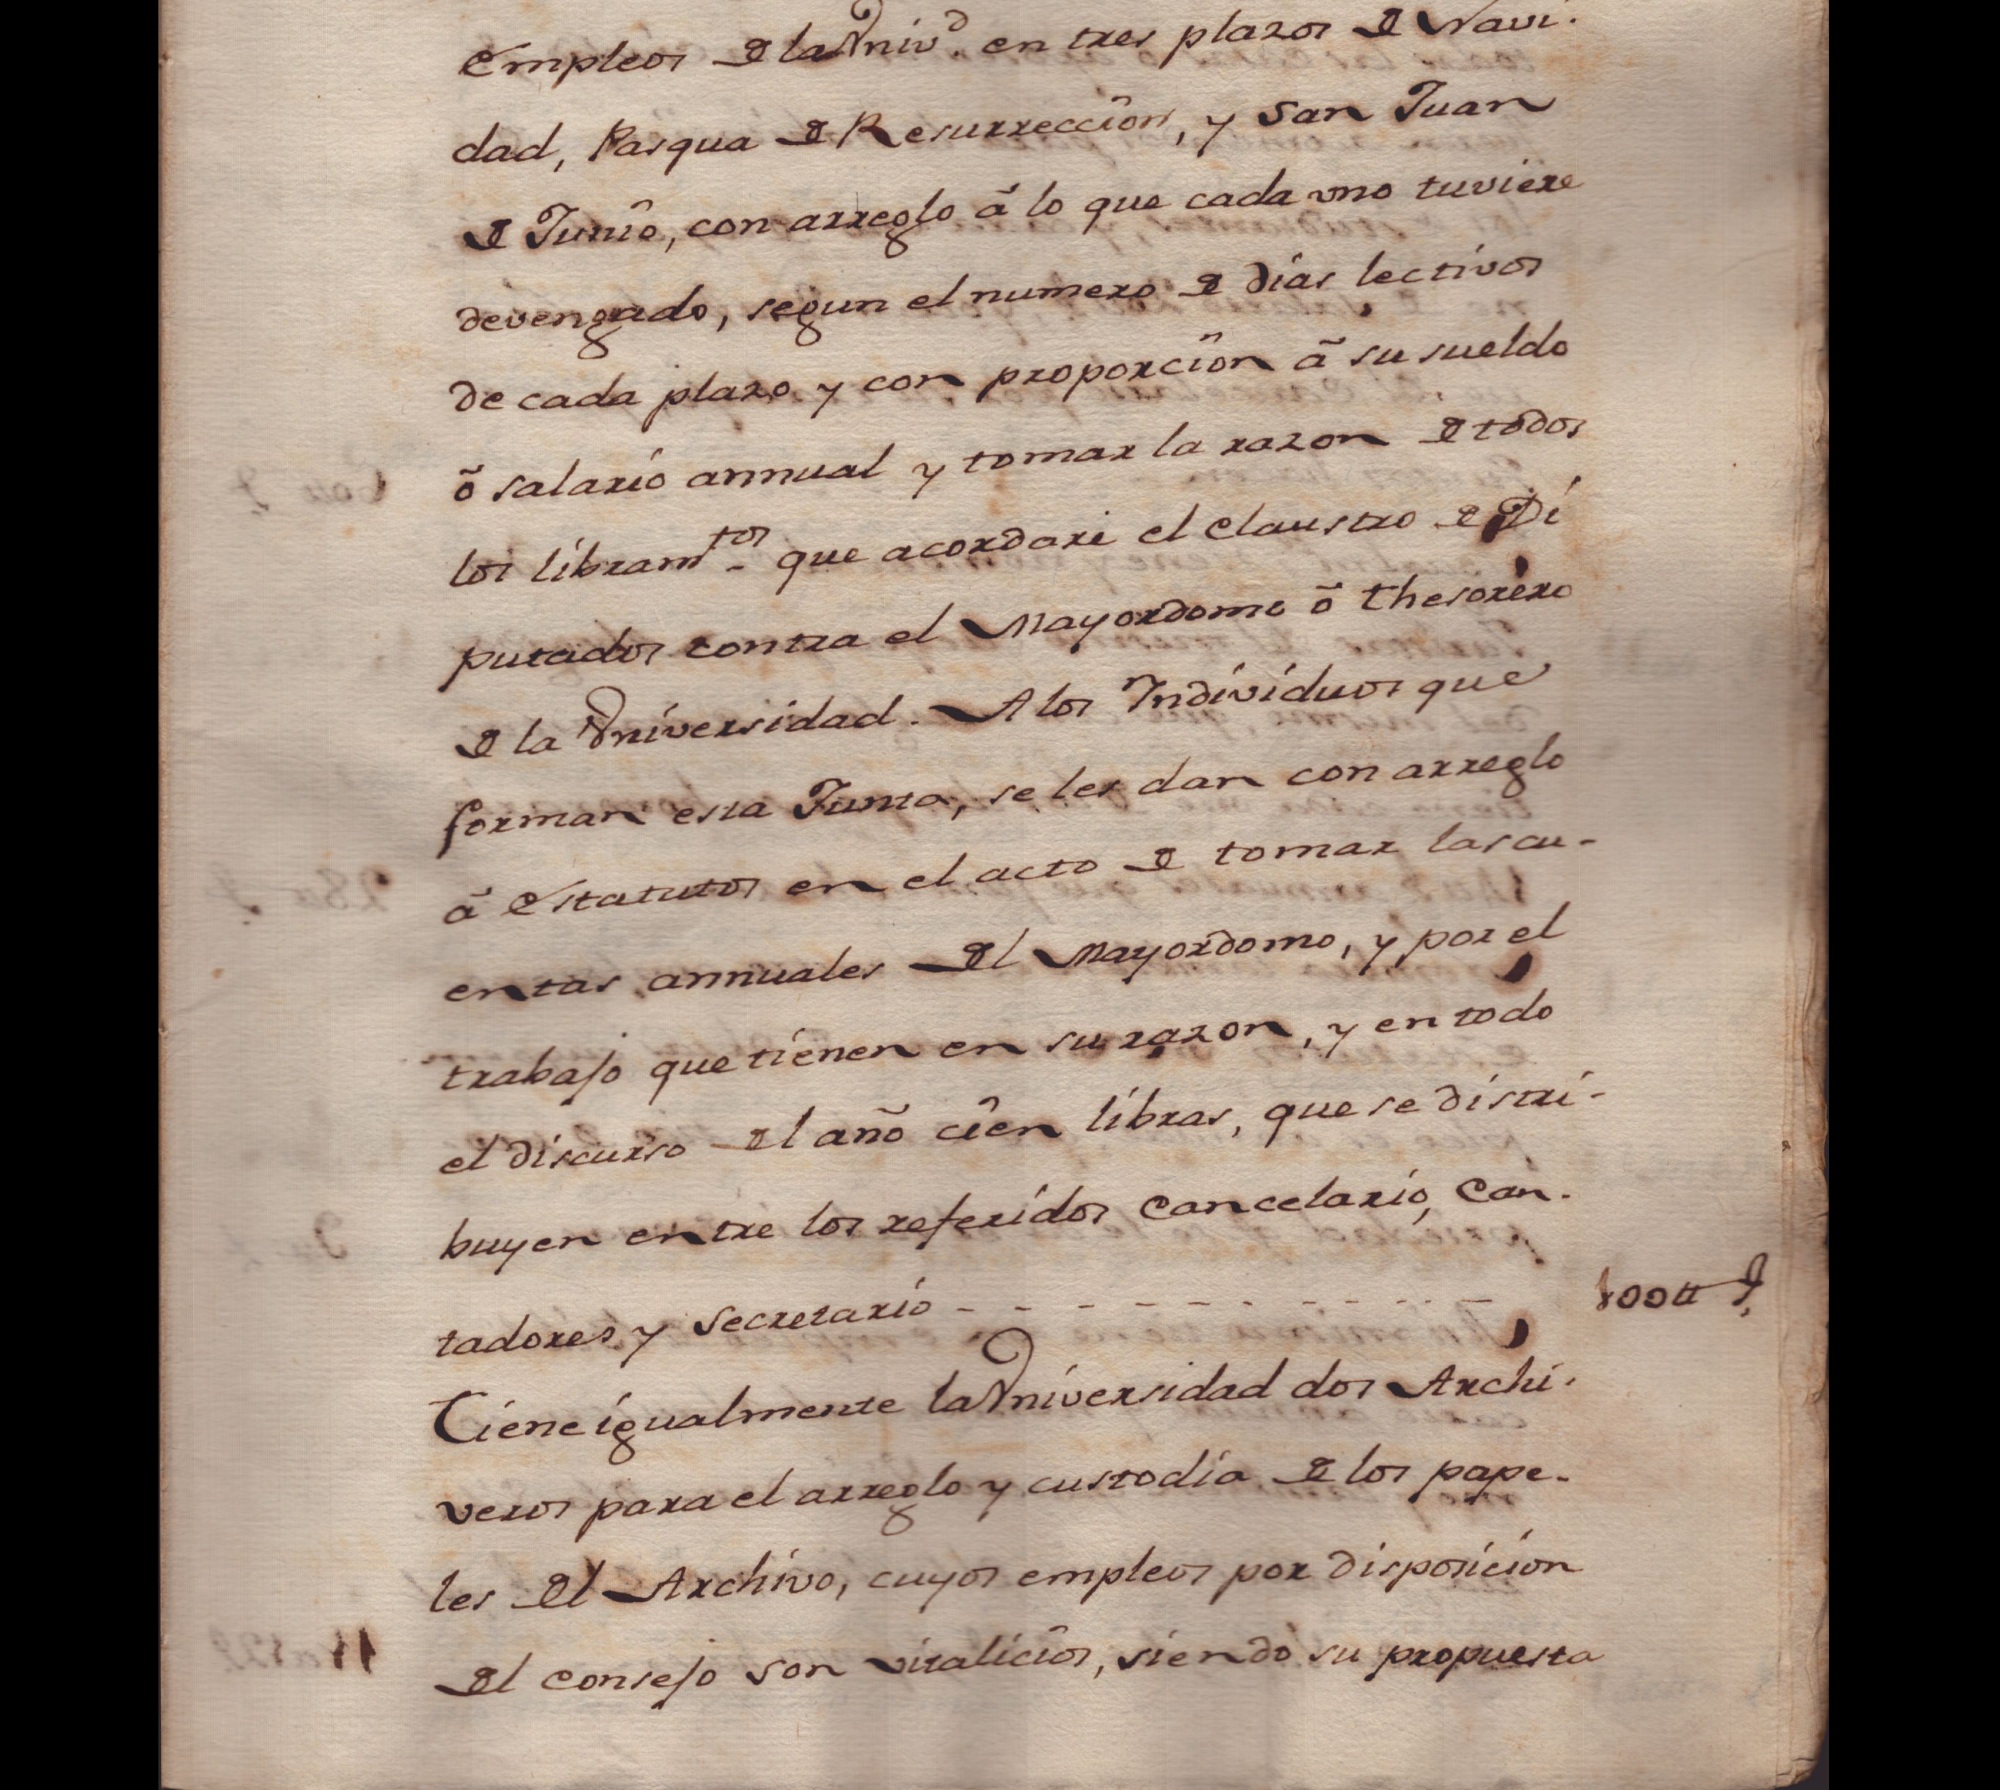 Empleos de la Univ.d en tres plazos de Navi-
dad, Pasqua de Resurreccîon, y San Juan
de Junîo, con arreglo â lo que cada uno tuviere
devengado, segun el numero de dias lectivos
de cada plazo y con proporcîon â su sueldo
ô salario annual y tomar la razon de todos
los libramtos que acordare el Claustro de Di
putados contra el Mayordomo ô thesorero
de la Universidad. A los Individuos que
forman esta Junta, se les dan con arreglo
â Estatutos en el acto de tomar las cu-
entas annuales del Mayordomo, y por el
trabajo que tienen en su razon, y en todo
el discurso del año cîen libras, que se distri-
buyen entre los referidos Cancelario, Con-
tadores y Secretario - - - - - - - - - - - - - 100tt
Tiene igualmente la Universidad dos Archi-
veros para el arreglo y custodia de los pape-
les del Archivo, cuyos empleos por disposicion
del Consejo son vitalicîos, siendo su propuesta